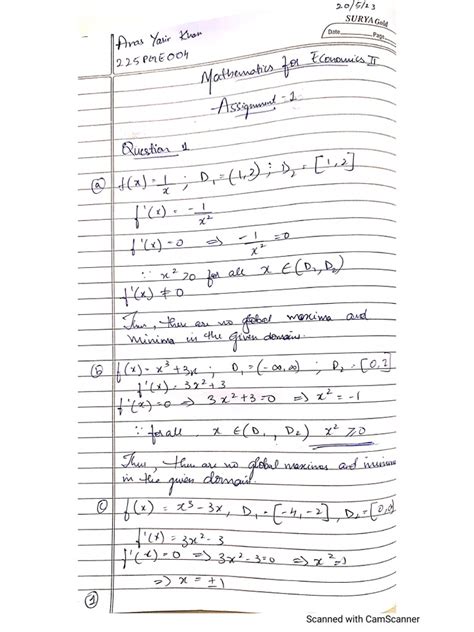 20/5/23
SURYA Gold
Date Page
Anas Yasir Khan
225PGE004
Mathematics for Economics II
Assignment - 1
Question 1
(a) f(x) = 1/x ; D₁ = (1,2) ; D₂ = [1,2]
f'(x) = -1/x²
f'(x) = 0 ⇒ -1/x² = 0
∵ x² > 0 for all x ∈ (D₁, D₂)
f'(x) ≠ 0
Thus, there are no global maxima and
minima in the given domain.
(b) f(x) = x³ + 3x ; D₁ = (-∞, ∞) ; D₂ = [0,
f'(x) = 3x² + 3
f'(x) = 0 ⇒ 3x² + 3 = 0 ⇒ x² = -1
∵ for all x ∈ (D₁, D₂) x² ≥ 0
Thus, there are no global maxima and minima
in the given domain.
(c) f(x) = x³ - 3x, D₁ = [-4, -2], D₂ = [0,
f'(x) = 3x² - 3
f'(x) = 0 ⇒ 3x² - 3 = 0 ⇒ x² = 1
⇒ x = ±1
(1)
Scanned with CamScanner